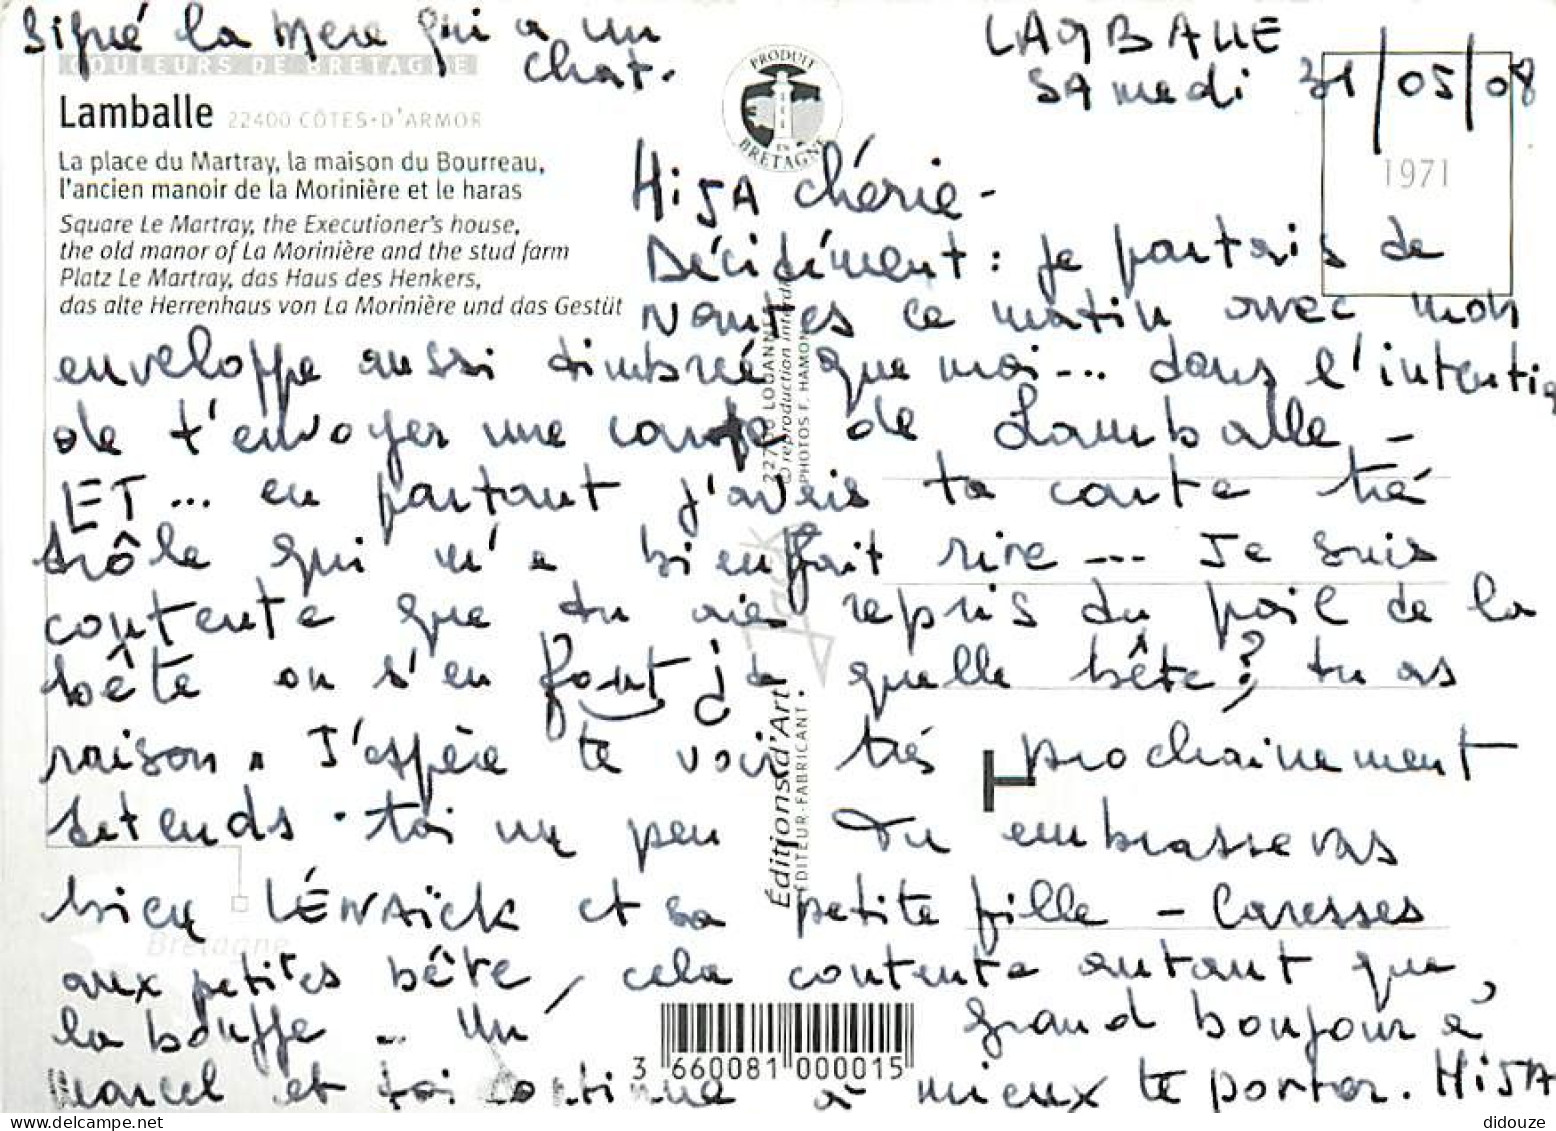 Signé la mere qui a un
chat.
COULEURS DE BRETAGNE
Lamballe 22400 CÔTES-D'ARMOR
La place du Martray, la maison du Bourreau,
l'ancien manoir de la Morinière et le haras
Square Le Martray, the Executioner's house,
the old manor of La Morinière and the stud farm
Platz Le Martray, das Haus des Henkers,
das alte Herrenhaus von La Morinière und das Gestüt
PRODUIT
EN
BRETAGNE
LAMBALLE
SAmedi 31/05/08
1971
HiJA chérie -
Décidément : je partais de
Nantes ce matin avec mon
enveloppe aussi timbrée que moi... dans l'intention
de t'envoyer une carte de Lamballe -
ET... en partant j'avais ta carte trés
drôle qui m'a bien fait rire --- Je suis
contente que tu aies repris du poil de la
bête on s'en fout de quelle bête? tu as
raison. J'espère te voir trés prochainement
détends-toi un peu Tu embrasseras
bien LÉNAÏCK et sa petite fille - Caresses
aux petites bête, cela contente autant que
la bouffe .. Un grand bonjour à
marcel et toi continue à mieux te porter. HiJA
LOUANNEC
© reproduction interdite
PHOTOS F. HAMON
Jack
Éditions d'Art
ÉDITEUR-FABRICANT
Bretagne
3 660081 000015
didouze